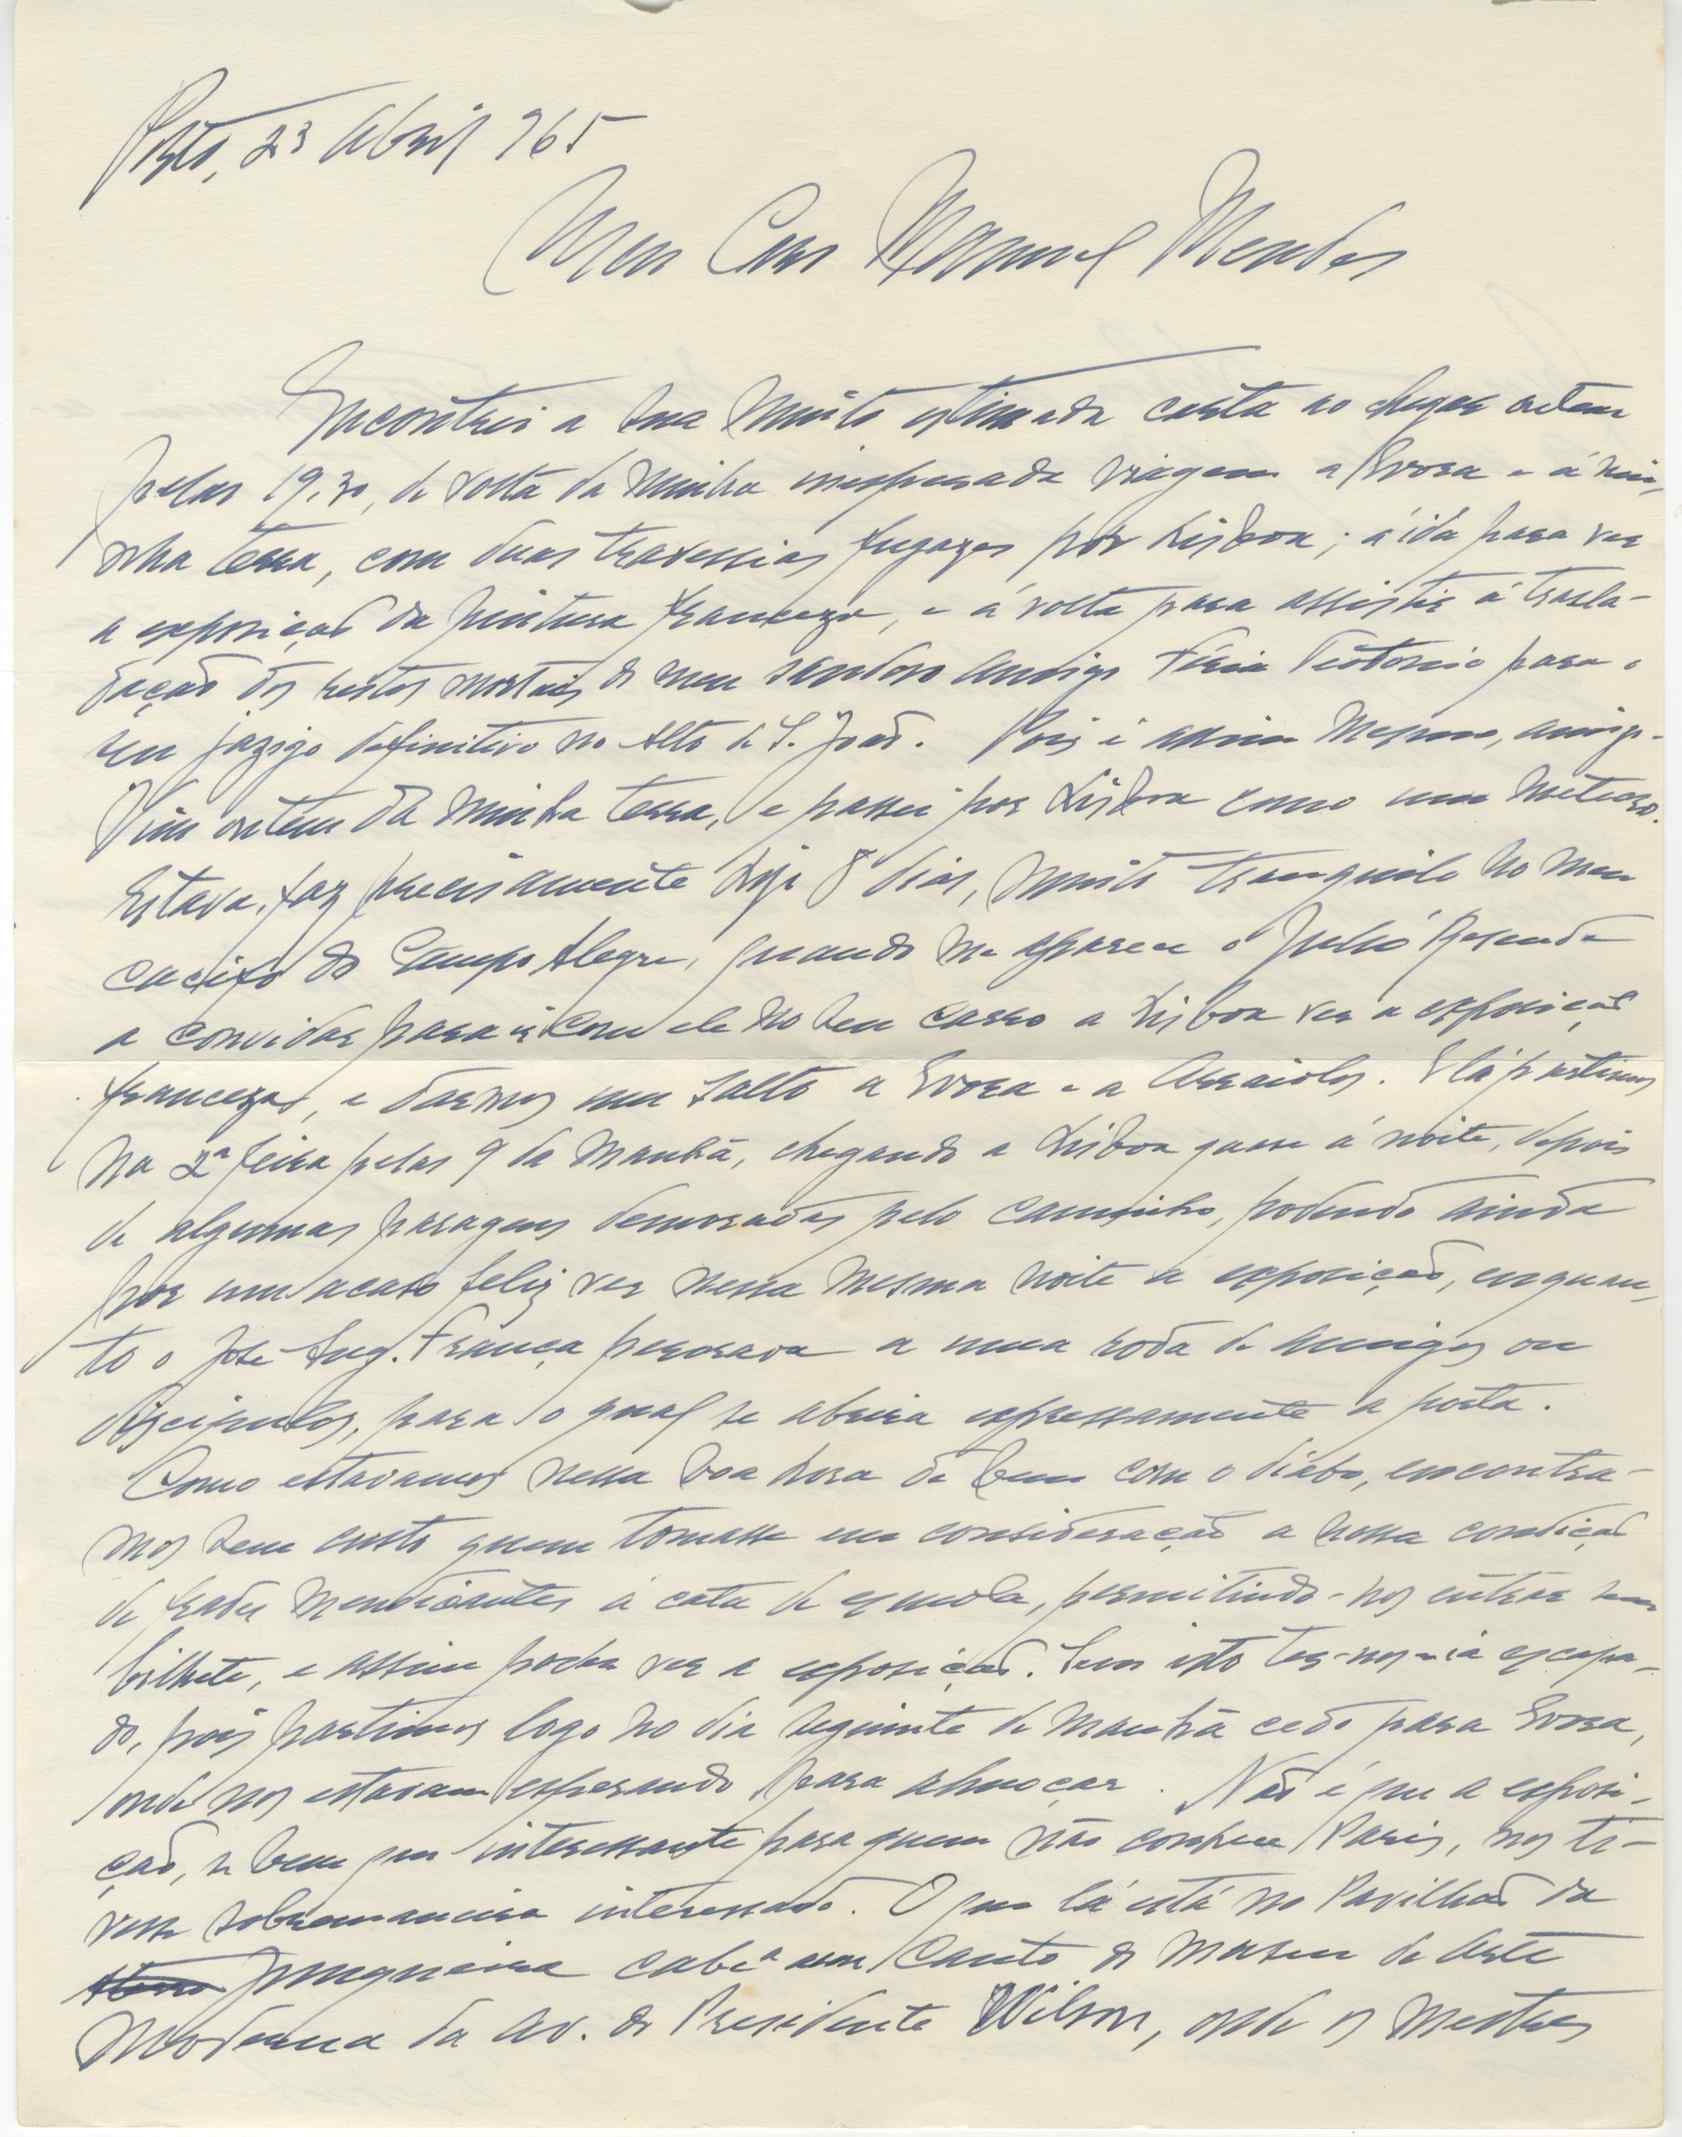 Porto, 23 Abril 965
Meu Caro Manuel Mendes
Encontrei a sua muito estimada carta ao chegar ontem
pelas 19,30, de volta da minha inesperada viagem a Evora e á mi-
nha terra, com duas travessias fugazes por Lisboa; á ida para ver
a exposição da pintura franceza, e á volta para assistir á trasla-
dação dos restos mortais do meu saudoso amigo Féria Teotonio para o
seu jazigo definitivo no Alto de S. João. Pois é assim mesmo, amigo.
Vim ontem da minha terra, e passei por Lisboa como um meteoro.
Estava, faz precisamente hoje 8 dias, muito tranquilo no meu
cacifo do Campo Alegre, quando me aparece o Julio Resende
a convidar para ir com ele no seu carro a Lisboa ver a exposição
franceza, e darmos um salto a Evora e a Arraiolos. E lá partimos
na 2ª feira pelas 9 da manhã, chegando a Lisboa quase á noite, depois
de algumas paragens demoradas pelo caminho, podendo ainda
por um acaso feliz ver nessa mesma noite a exposição, enquan-
to o José Aug. França perorava a uma roda de amigos ou
discipulos, para o qual se abrira expressamente a porta.
Como estavamos nessa boa hora de bem com o diabo, encontra-
mos sem custo quem tomasse em consideração a nossa condição
de frades mendicantes á cata de esmola, permitindo-nos entrar sem
bilhete, e assim poder ver a exposição. Sem isto ter-nos-ia escapa-
do, pois partimos logo no dia seguinte de manhã cedo para Evora,
onde nos estavam esperando para almoçar. Não é que a exposi-
ção, se bem que interessante para quem não conhece Paris, nos ti-
vesse sobremaneira interessado. O que lá está no Pavilhão da
Junqueira cabia num canto do Museu de Arte
Moderna da Av. do Presidente Wilson, onde os mestres